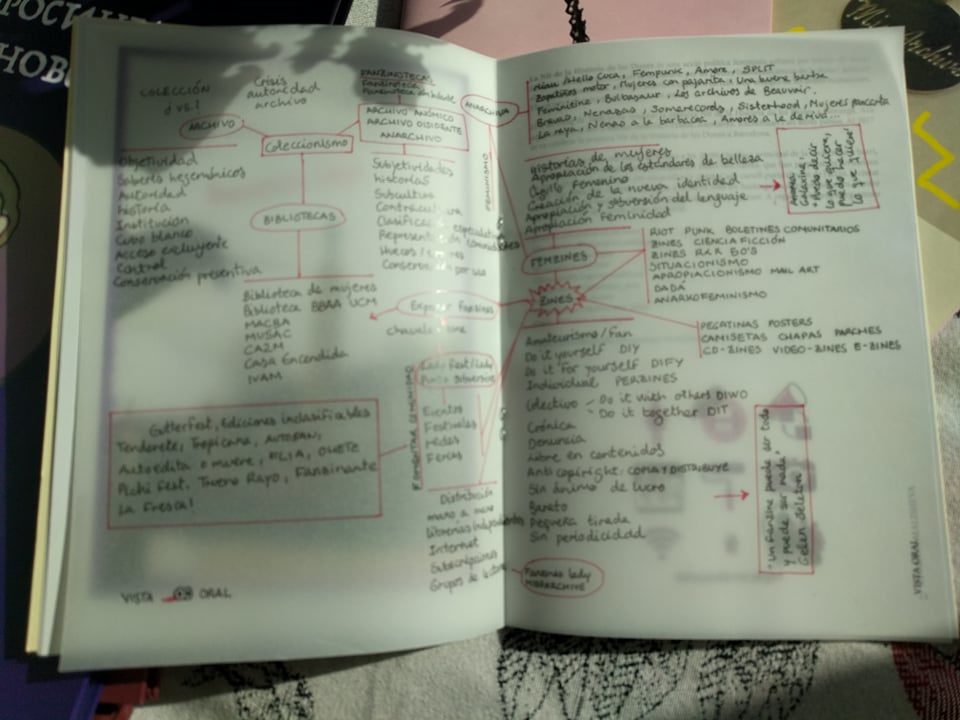 РОСИ
НОВ
Mi Archivo
COLECCIÓN
ó vs.!
Crisis
autoridad
archivo
FANZINOTECAS
Fanzinoteca
Fanzinoteca ambulante
ARCHIVO
Coleccionismo
ARCHIVO ANÓMICO
ARCHIVO DISIDENTE
ANARCHIVO
Objetividad
Saberes hegemónicos
Autoridad
Historia
Institución
Cubo blanco
Acceso excluyente
Control
Conservación preventiva
BIBLIOTECAS
Subjetividades
historias
Subcultura
Contracultura
Conservación por uso
FEMINISMO
Biblioteca de mujeres
Biblioteca BBAA UCM
MACBA
MUSAC
CA2M
Casa Encendida
IVAM
Exponer Fanzines
Gutterfest, Ediciones inclasificables
Tenderete, Tropicana, AUTOBAN,
Autoedita o muere,
Pichi Fest, Trueno Rayo, Fanzinante
La Fresca!
FOMENTAR COMUNIDAD
Lady Fest/Lady
Eventos
Festivales
Redes
Ferias
Distribución
mano a mano
Librerías independientes
Internet
Subscripciones
Grupos de lectura
VISTA ORAL
ANARCHIVA
Bello Cuca, Fempunk, Amore, SPLIT
Zapatitos motor, Mujeres con pajarita, Una buena barba
Feminetina, Bulbasaur, Los archivos de Beauvoir,
Bravas, Nenazas, Somerecords, Sisterhood, Mujeres pancarta
La raya, Nenas a la barbacoa, Amores a la deriva...
Historias de mujeres
Apropiación de los estándares de belleza
Orgullo Femenino
Creación de la nueva identidad
Apropiación y subversión del lenguaje
Apropiación Feminidad
Andrea
Galaxina:
"Puedo decir
lo que quiera,
puedo hacer
lo que quiera"
FEMZINES
RIOT PUNK BOLETINES COMUNITARIOS
ZINES CIENCIA FICCIÓN
ZINES R&R 50'S
SITUACIONISMO
APROPIACIONISMO MAIL ART
DADÁ
ANARKOFEMINISMO
ZINES
PEGATINAS POSTERS
CAMISETAS CHAPAS PARCHES
CD-ZINES VIDEO-ZINES E-ZINES
Amateurismo/Fan
Do it yourself DIY
Do it For yourself DIFY
Individual PERZINES
Colectivo - Do it with others DIWO
- Do it together DIT
Crónica
Denuncia
Libre en contenidos
Anti copyright: COPIA Y DISTRIBUYE
Sin ánimo de lucro
Barato
Pequeña tirada
Sin periodicidad
"Un Fanzine puede ser todo
y puede ser nada"
Gelen Jeleton
Fanzineo lady
VISTA ORAL